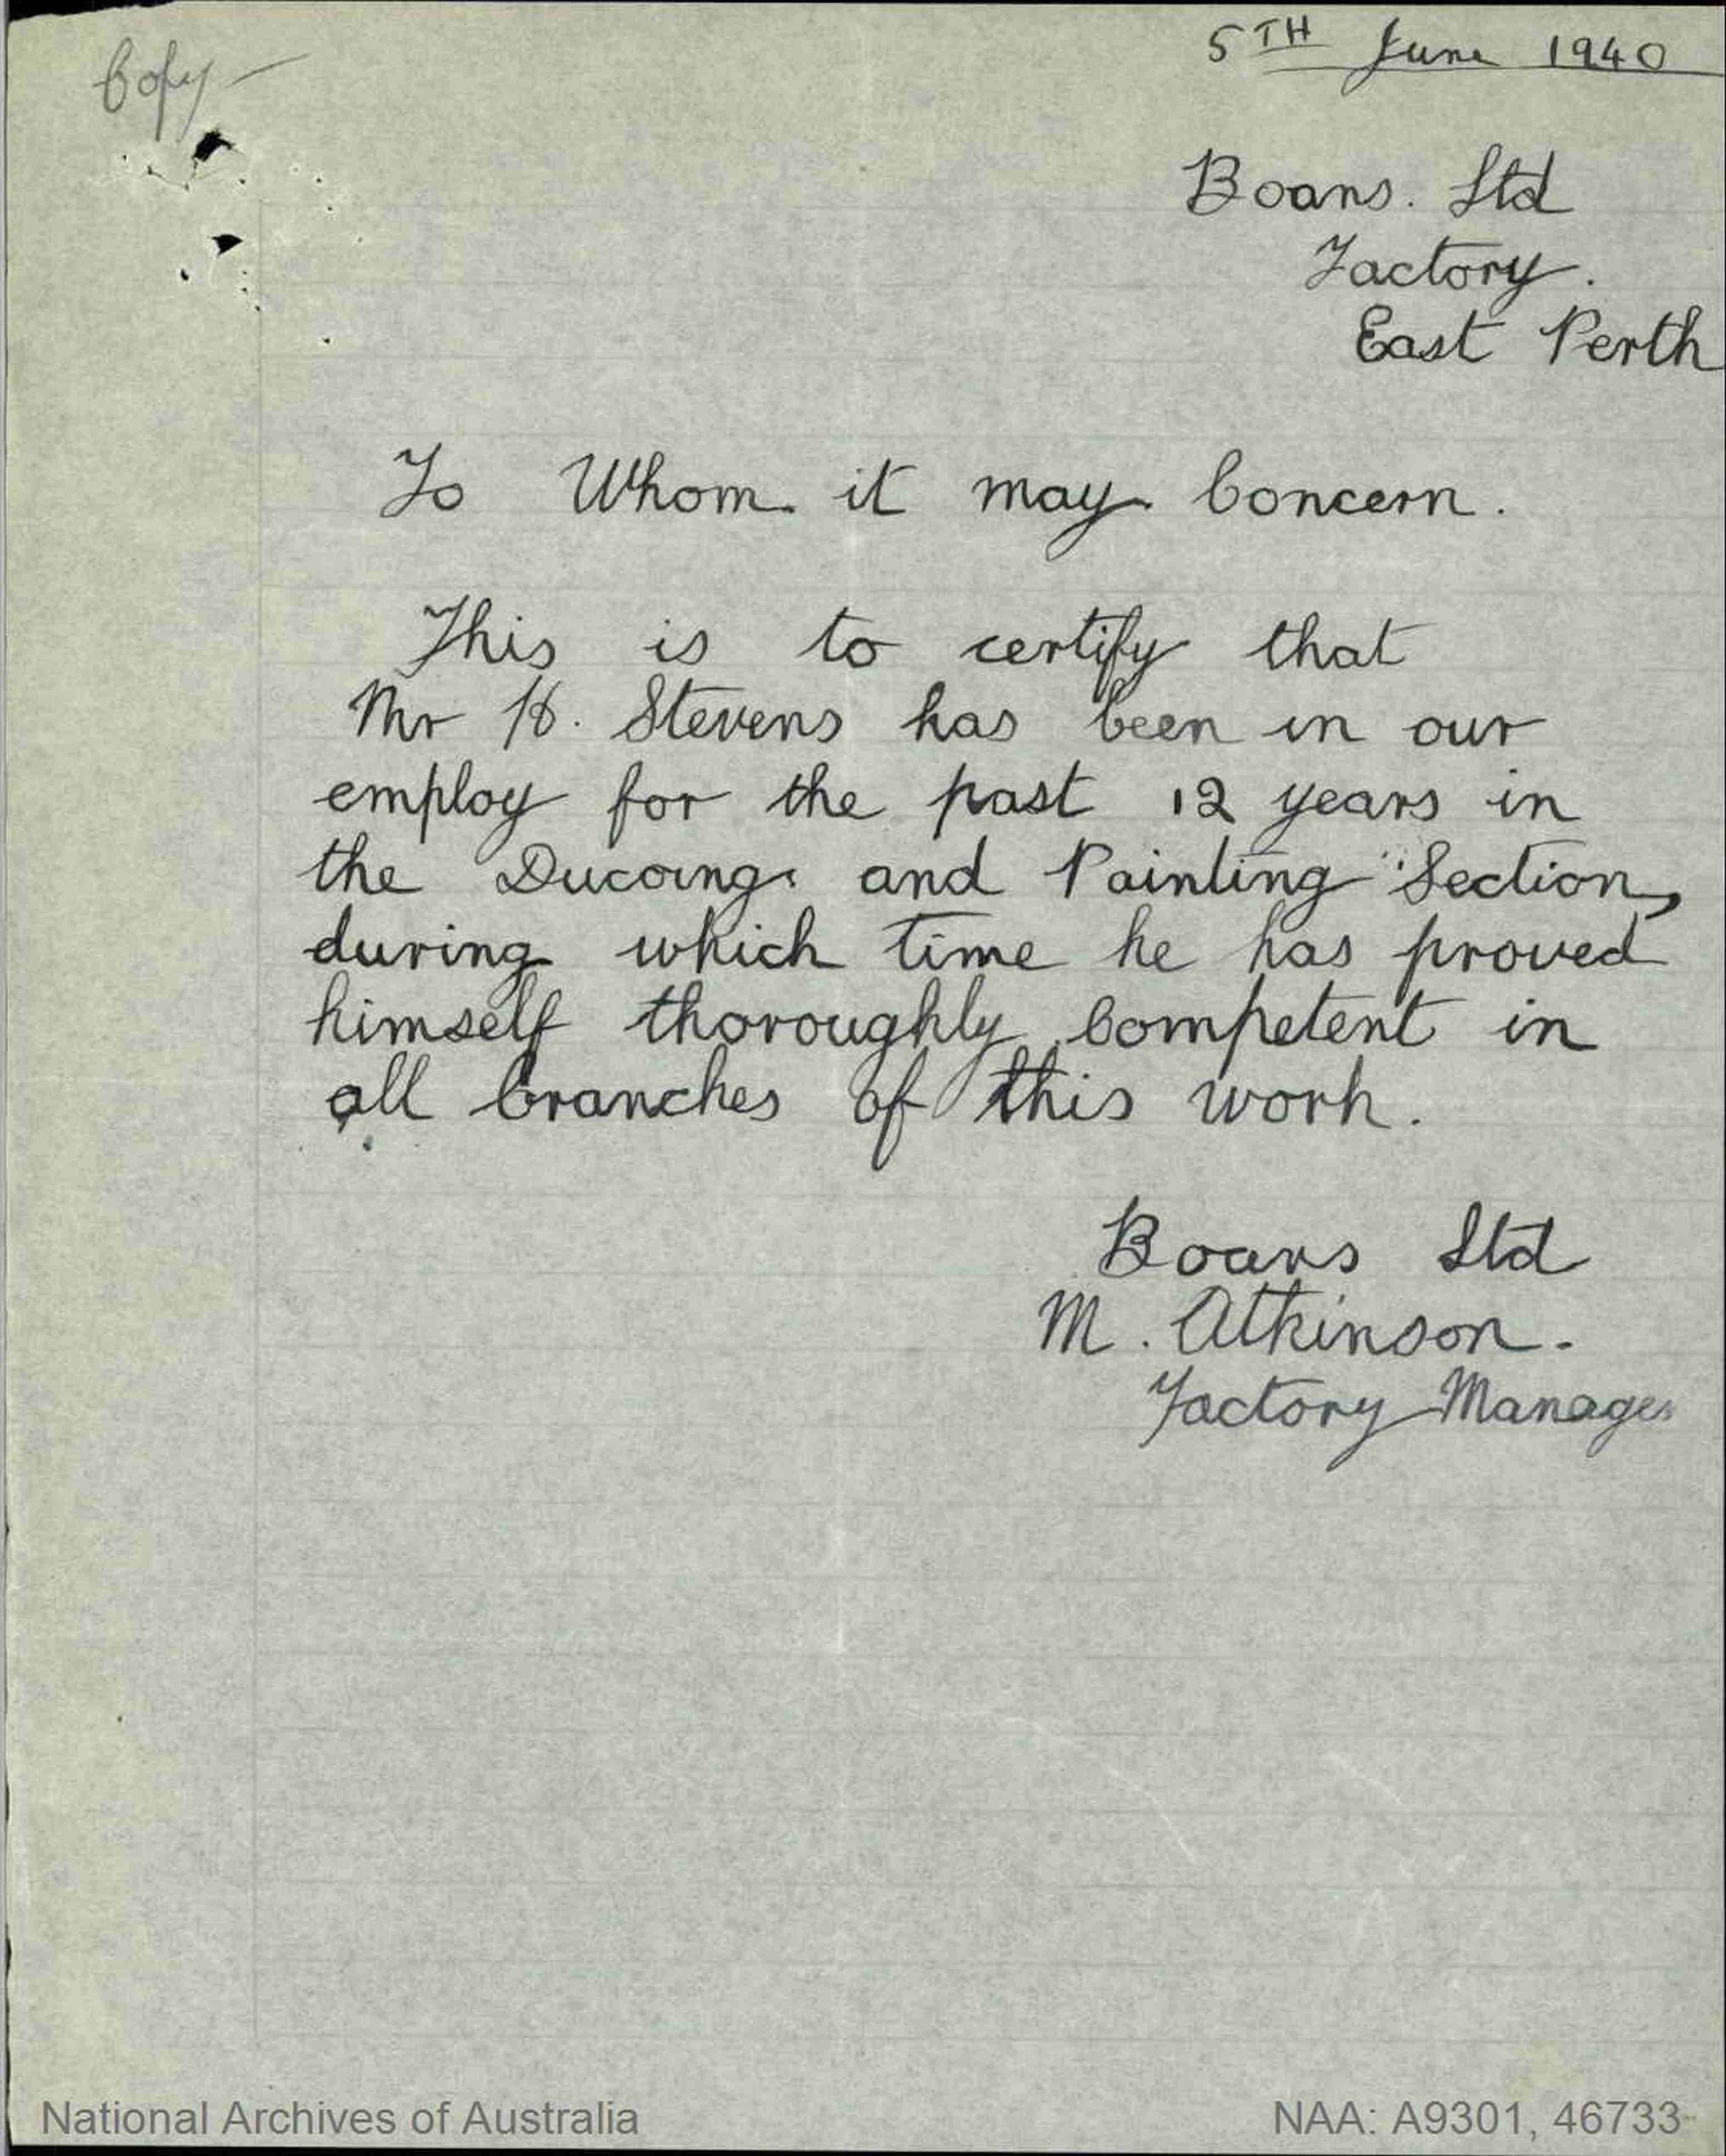 Copy -
5TH June 1940
Boans. Ltd
Factory.
East Perth
To Whom it may Concern.
This is to certify that
Mr H. Stevens has been in our
employ for the past 12 years in
the Ducoing and Painting Section,
during which time he has proved
himself thoroughly Competent in
all branches of this work.
Boans Ltd
M. Atkinson.
Factory Manager
National Archives of Australia
NAA: A9301, 46733